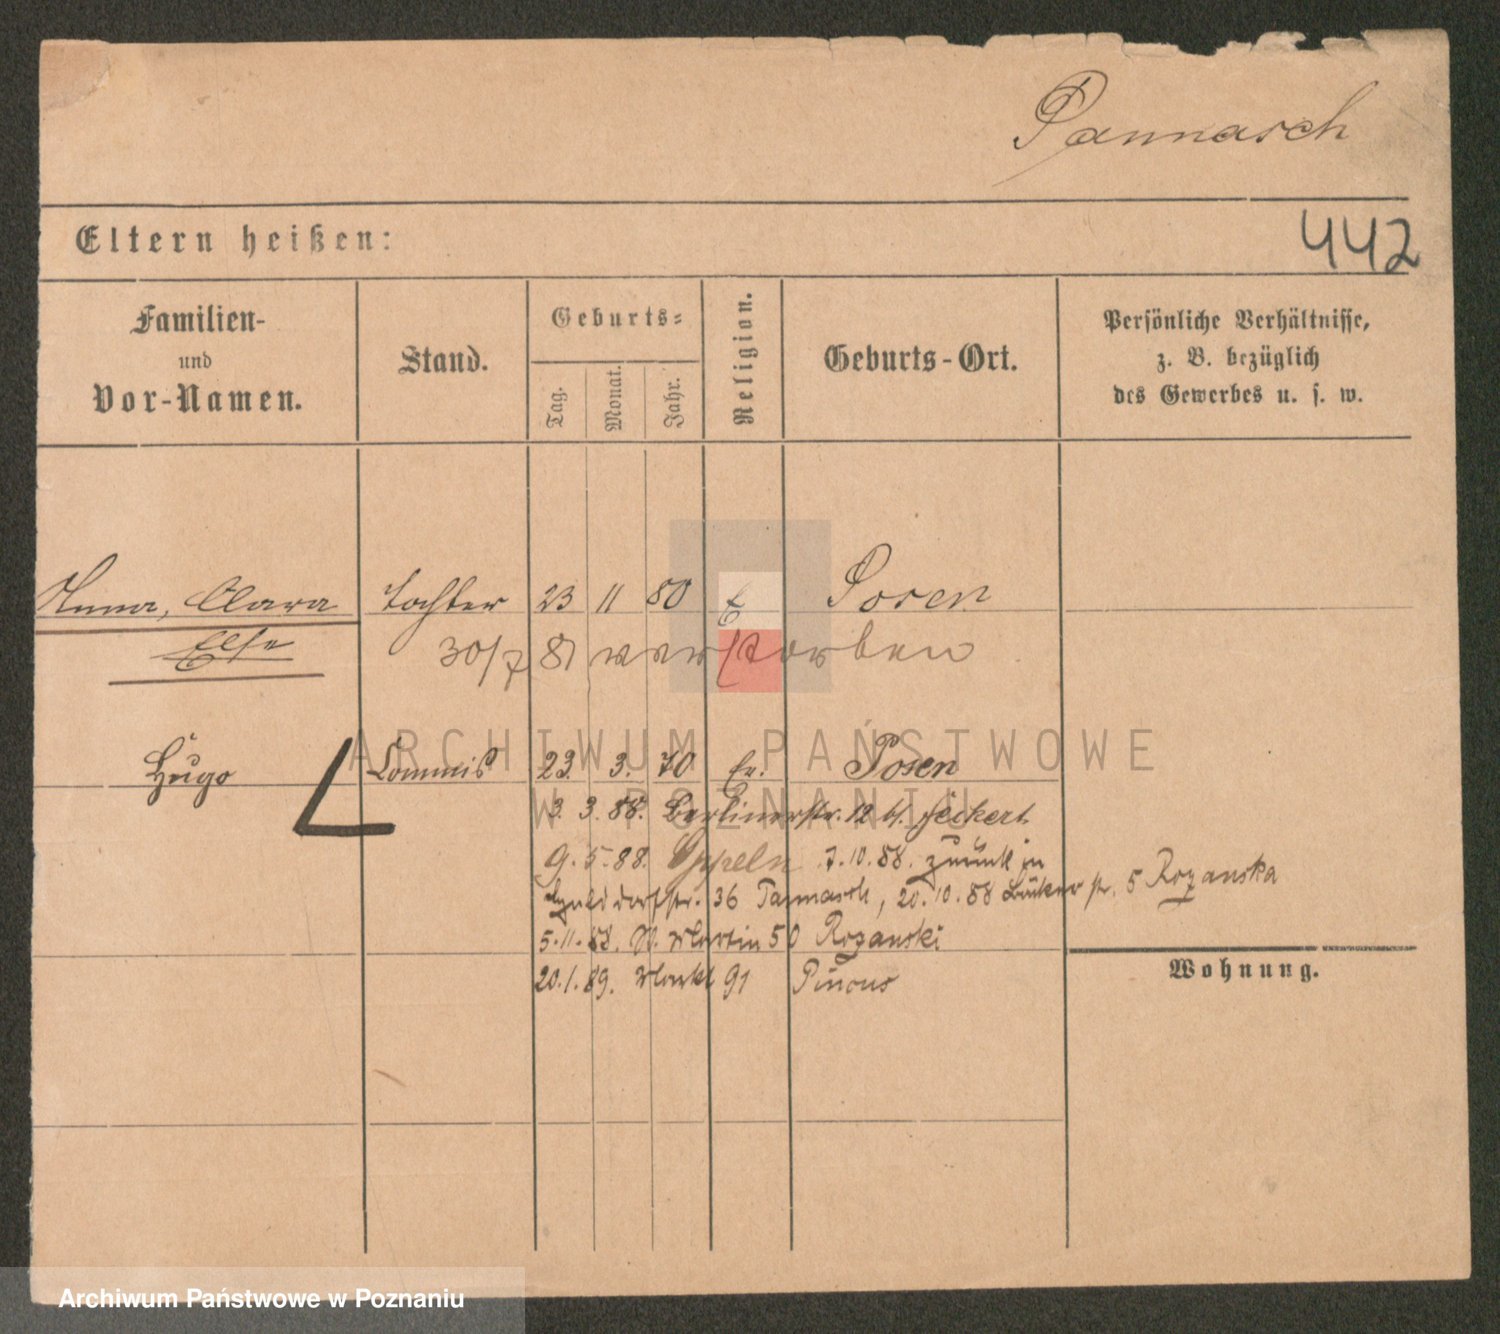 Pannasch
Eltern heißen:
442
Familien-
und
Vor-Namen.
Stand.
Geburts-
Tag.
Monat.
Jahr.
Religion.
Geburts-Ort.
Persönliche Verhältnisse,
z. B. bezüglich
des Gewerbes u. s. w.
Anna, Clara Tochter 23 11 80 E Posen
Else
30/7 81 verstorben
Hugo Commis 23. 3. 70 Ev. Posen
3. 3. 88. Berlinerstr. 12 b/ Seikert
9. 5. 88. Oppeln 7. 10. 88. zurück in
36 Pannasch, 20. 10. 88 Bäckerstr. 5 Rozanska
5. 11. 88. St. Martin 50 Rozanski
20. 1. 89. Markt 91 Pincus
Wohnung.
ARCHIWUM PAŃSTWOWE
W POZNANIU
Archiwum Państwowe w Poznaniu